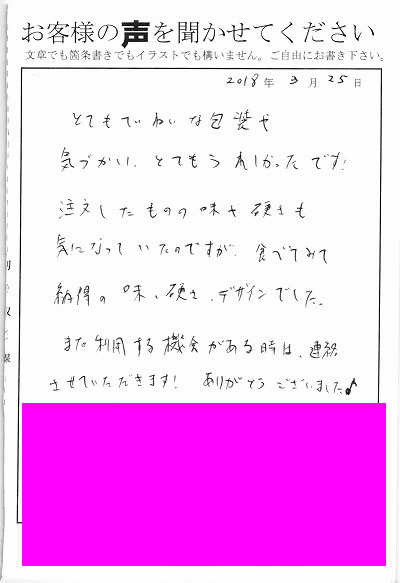 お客様の声を聞かせてください
文章でも箇条書きでもイラストでも構いません。ご自由にお書き下さい。
2018年 3月 25日
とてもていねいな包装や
気づかい、とてもうれしかったです!
注文したものの味や硬さも
気になっていたのですが、食べてみて
納得の味、硬さ、デザインでした。
また利用する機会がある時は、連絡
させていただきます! ありがとうございました♪